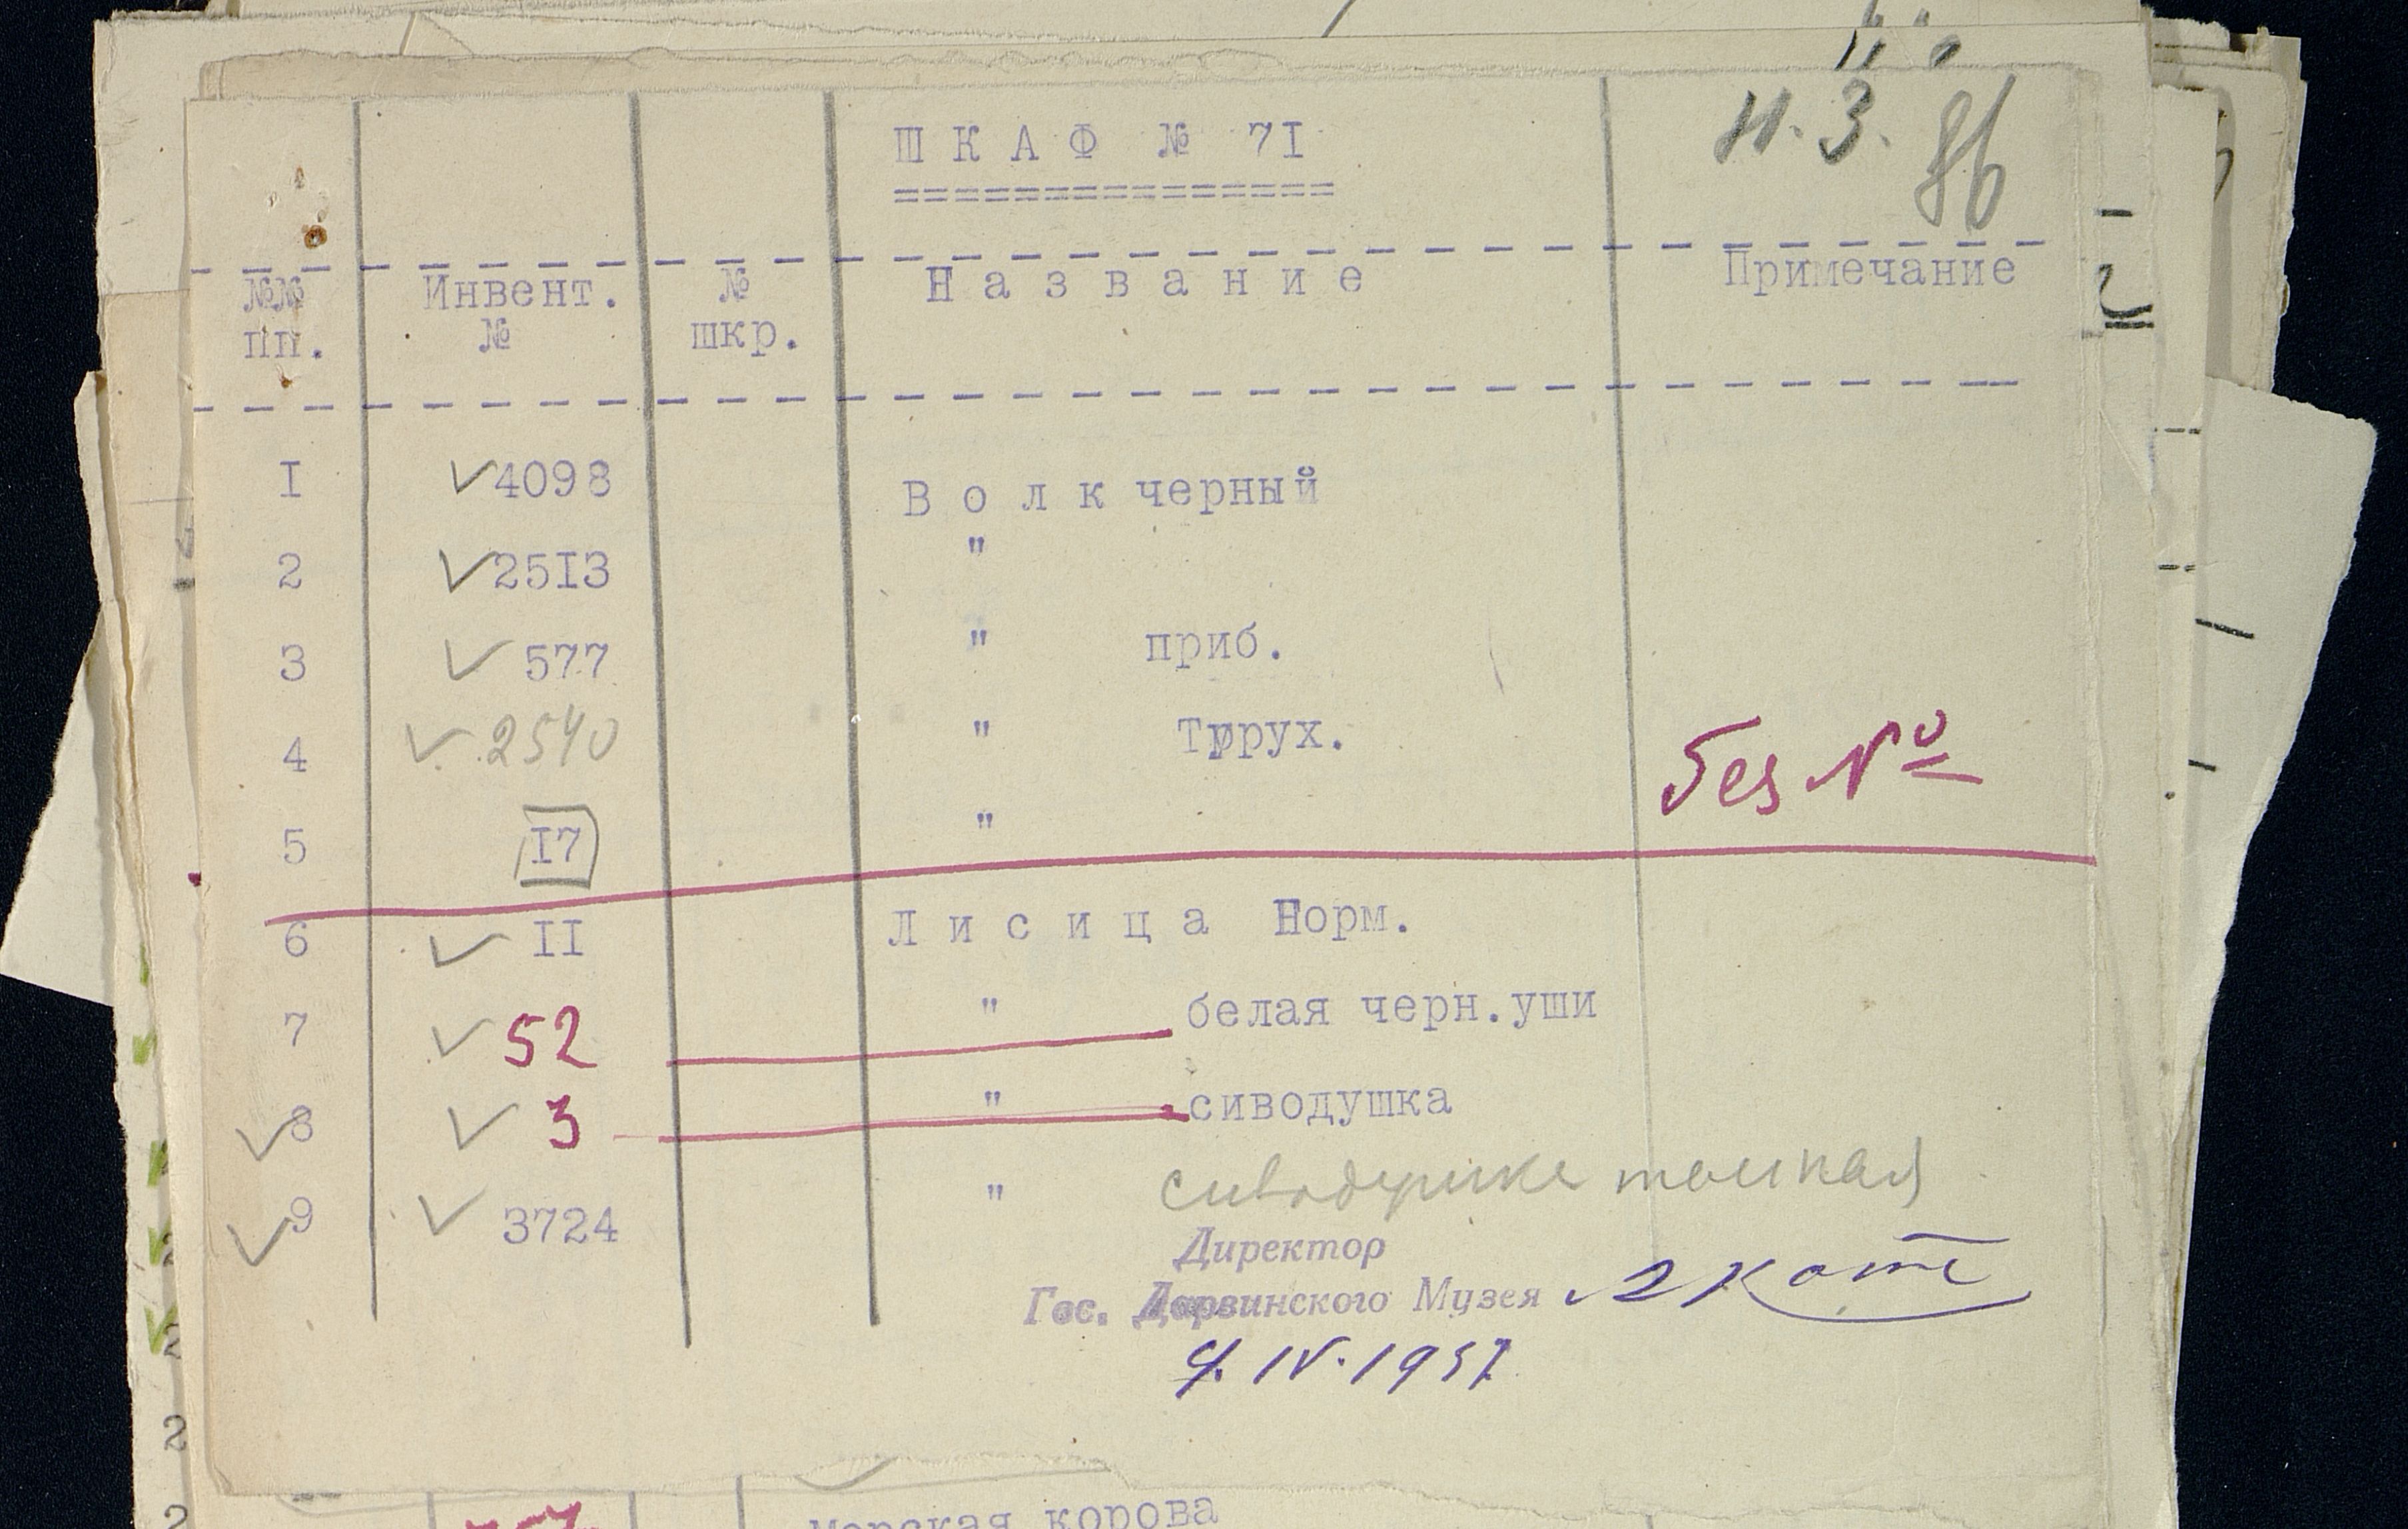 Н.З. 86
ШКАФ № 7I
===============
№№ пп. Инвент. № № шкр. Название Примечание
I 4098 Волк черный
2 25I3 "
3 577 " приб.
4 2540 " Туррух. без №
5 I7 "
6 II Лисица Норм.
7 52 " белая черн.уши
8 3 " сиводушка
9 3724 " сиводушка
Директор
Гос. Дарвинского Музея
IV. 1957
морская корова